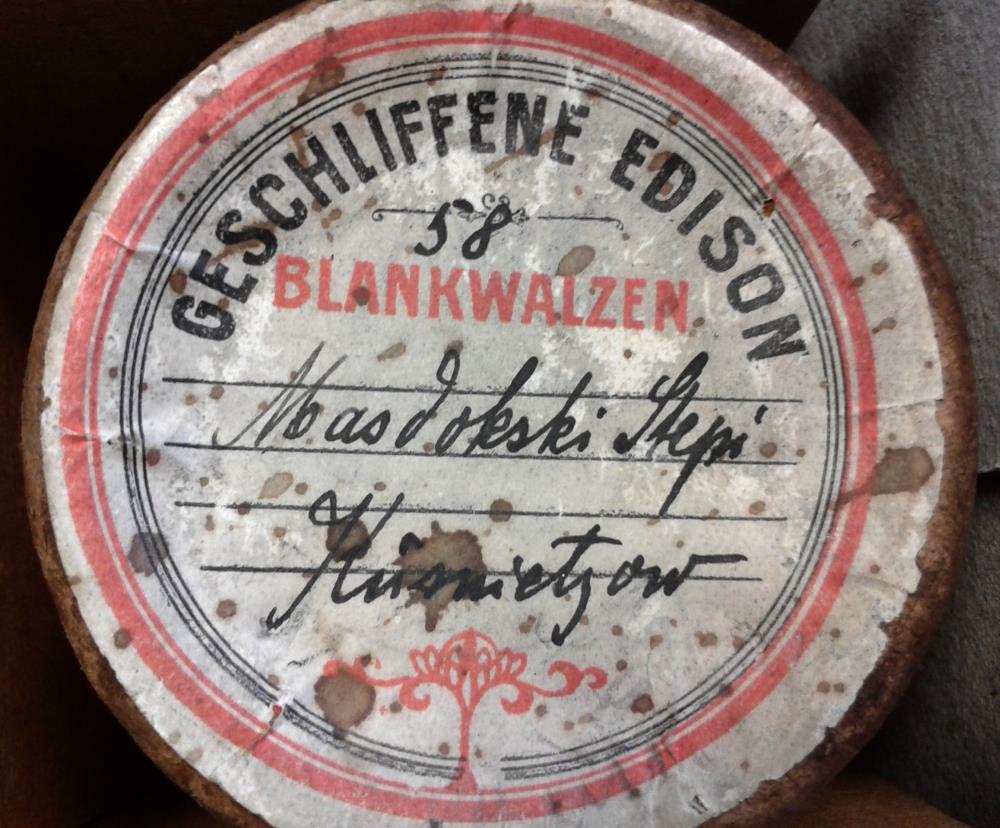 GESCHLIFFENE EDISON
58
BLANKWALZEN
Masdokski Stepi
Kusnietzow